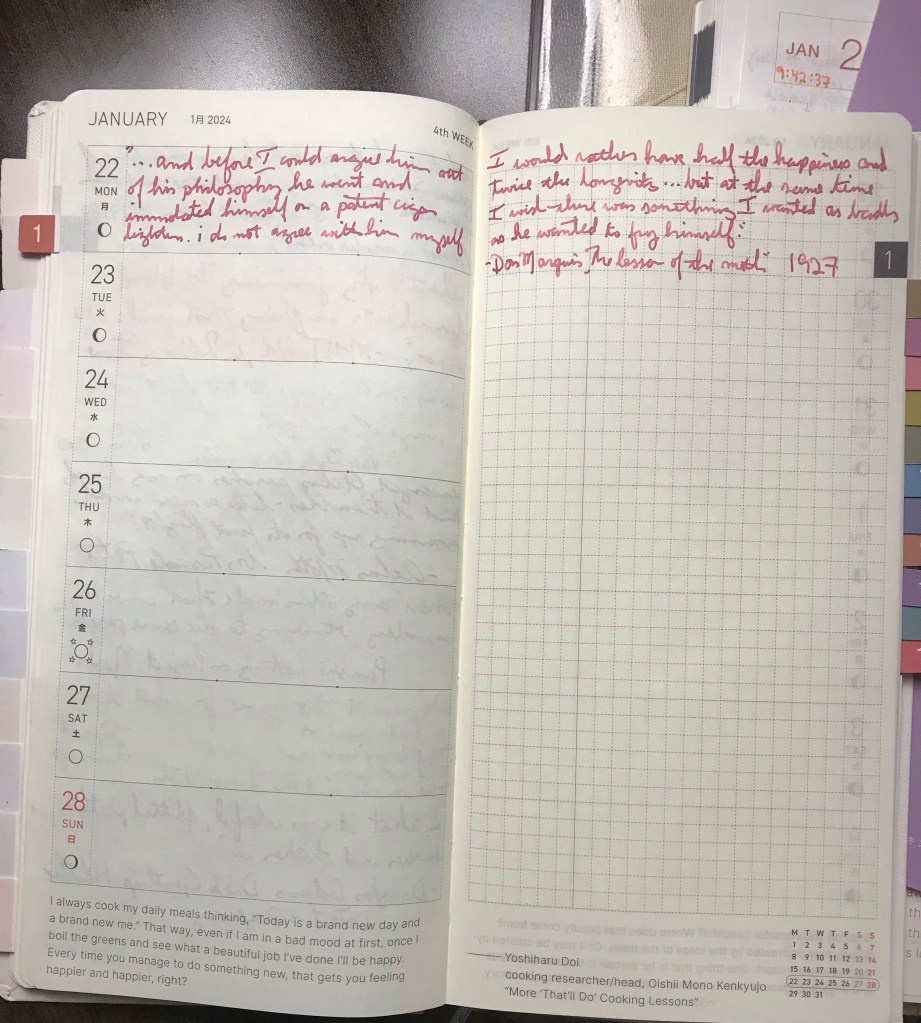 JAN 2
9:42:37
JANUARY 1月 2024
4th WEEK
22
MON
月
"... and before I could argue him out
of his philosophy he went and
immolated himself on a patent cigar
lighter. i do not agree with him myself
1
23
TUE
火
24
WED
水
25
THU
木
26
FRI
金
27
SAT
土
28
SUN
日
I always cook my daily meals thinking, "Today is a brand new day and
a brand new me." That way, even if I am in a bad mood at first, once I
boil the greens and see what a beautiful job I've done I'll be happy.
Every time you manage to do something new, that gets you feeling
happier and happier, right?
I would rather have half the happiness and
twice the longevity ... but at the same time
I wish there was something I wanted as badly
as he wanted to fry himself."
- Don Marquis, "The lesson of the moth" 1927
1
Yoshiharu Doi
cooking researcher/head, Oishii Mono Kenkyujo
"More 'That'll Do' Cooking Lessons"
M T W T F S S
1 2 3 4 5 6 7
8 9 10 11 12 13 14
15 16 17 18 19 20 21
22 23 24 25 26 27 28
29 30 31